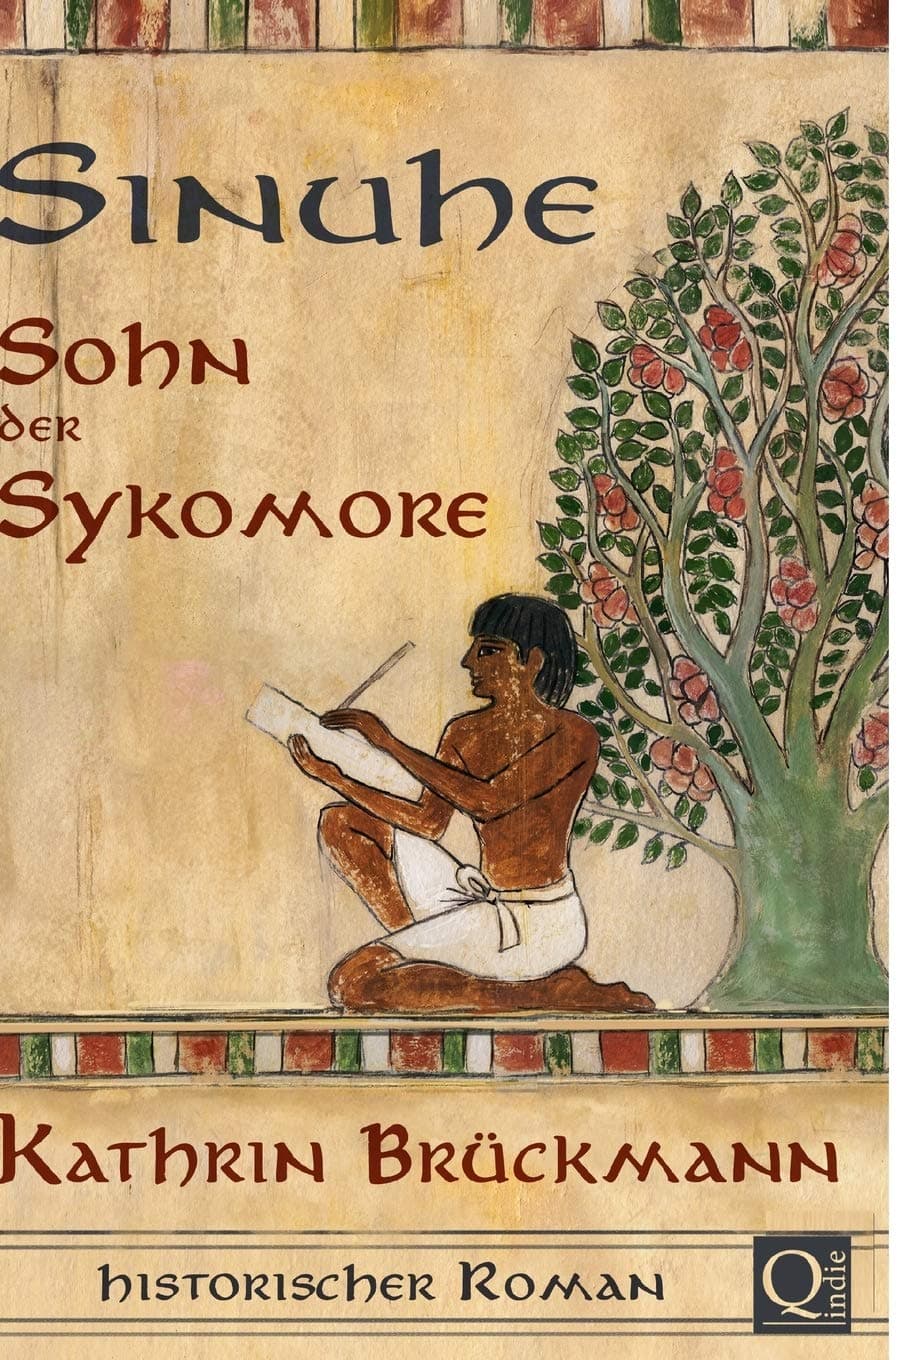 Sinuhe
Sohn
der
Sykomore
Kathrin Brückmann
historischer Roman
Qindie